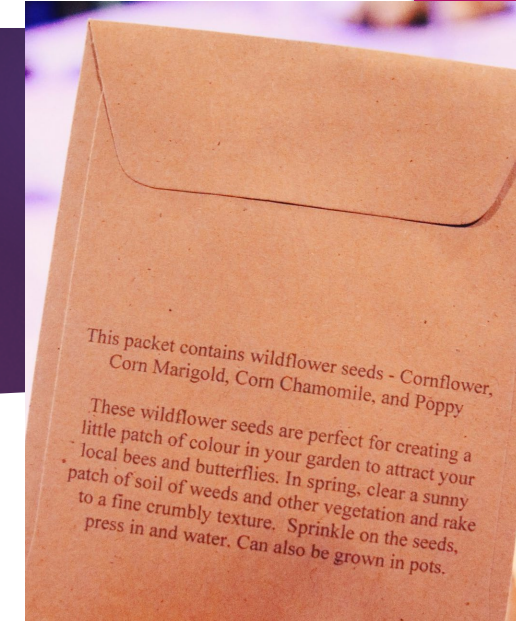 This packet contains wildflower seeds - Cornflower,
Corn Marigold, Corn Chamomile, and Poppy
These wildflower seeds are perfect for creating a
little patch of colour in your garden to attract your
local bees and butterflies. In spring, clear a sunny
patch of soil of weeds and other vegetation and rake
to a fine crumbly texture. Sprinkle on the seeds,
press in and water. Can also be grown in pots.